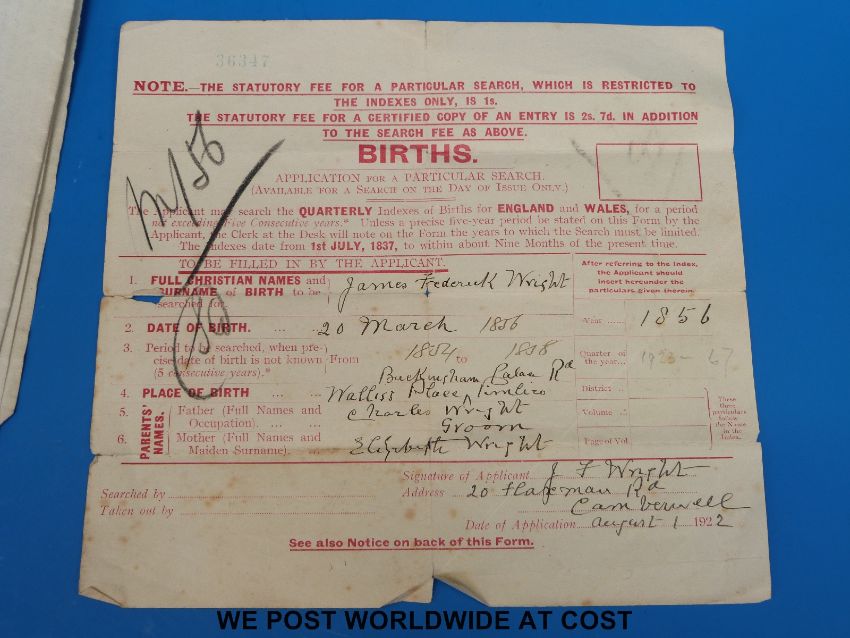 36347
NOTE.—THE STATUTORY FEE FOR A PARTICULAR SEARCH, WHICH IS RESTRICTED TO
THE INDEXES ONLY, IS 1s.
THE STATUTORY FEE FOR A CERTIFIED COPY OF AN ENTRY IS 2s. 7d. IN ADDITION
TO THE SEARCH FEE AS ABOVE.
BIRTHS.
APPLICATION FOR A PARTICULAR SEARCH.
(AVAILABLE FOR A SEARCH ON THE DAY OF ISSUE ONLY.)
The Applicant may search the QUARTERLY Indexes of Births for ENGLAND and WALES, for a period
not exceeding Five Consecutive years.* Unless a precise five-year period be stated on this Form by the
Applicant, the Clerk at the Desk will note on the Form the years to which the Search must be limited.
The Indexes date from 1st JULY, 1837, to within about Nine Months of the present time.
TO BE FILLED IN BY THE APPLICANT.
After referring to the Index, the Applicant should insert hereunder the particulars given therein.
1. FULL CHRISTIAN NAMES and SURNAME of BIRTH to be searched for. James Federick Wright
2. DATE OF BIRTH. 20 March 1856
Year 1856
3. Period to be searched, when precise date of birth is not known (5 consecutive years).* From 1854 to 1858
Quarter of the year
Buckingham Rd
4. PLACE OF BIRTH Walliss Place Pimlico
District
PARENTS' NAMES.
5. Father (Full Names and Occupation). Charles Wright
Groom
Volume
6. Mother (Full Names and Maiden Surname). Elizabeth Wright
Page of Vol.
These three particulars follow the Name in the Index.
Signature of Applicant J F Wright
Searched by
Address 20 Rd
Taken out by
Camberwell
Date of Application August 1 1922
See also Notice on back of this Form.
WE POST WORLDWIDE AT COST